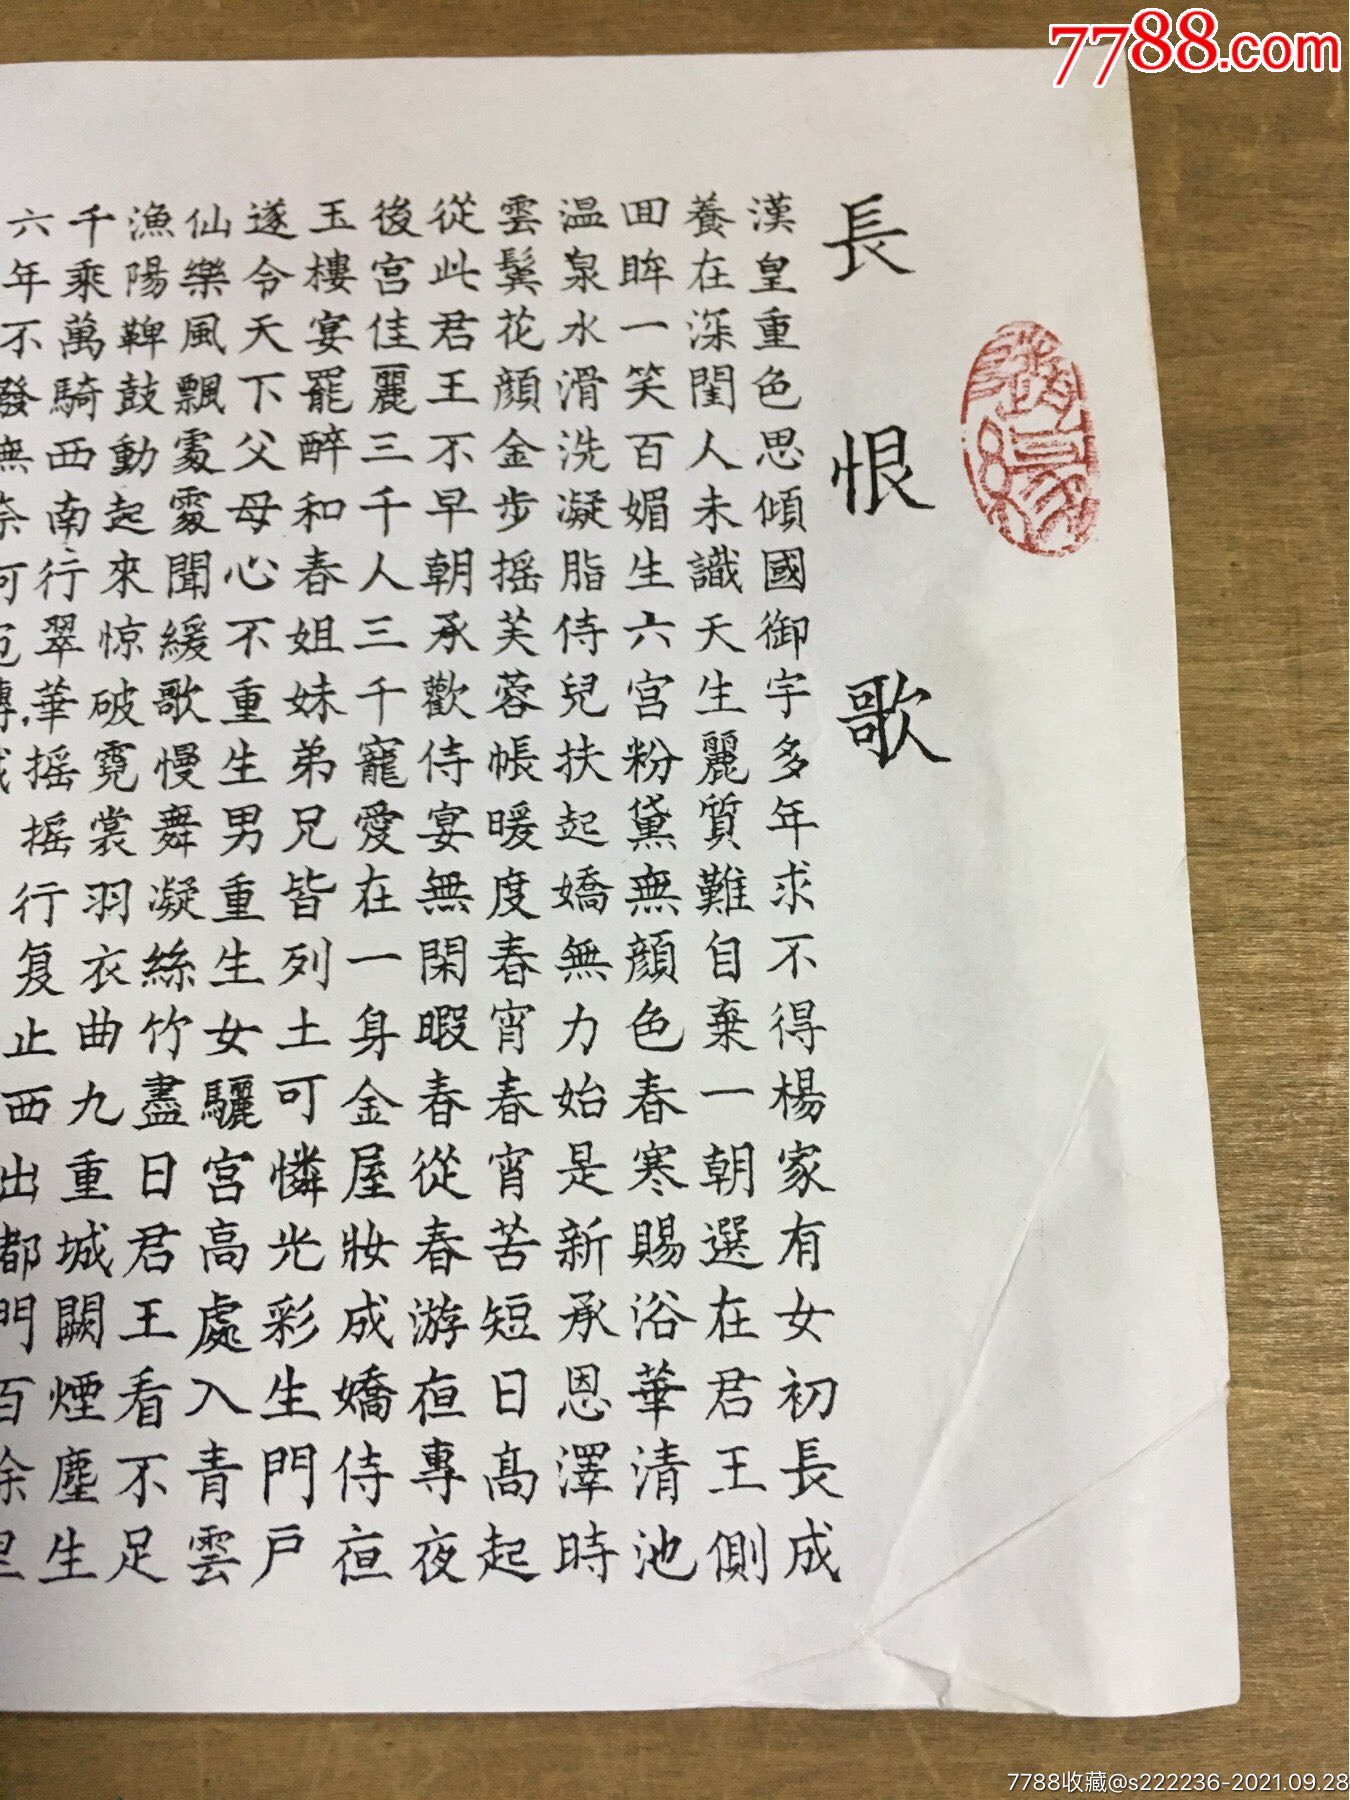 長恨歌
漢皇重色思傾國御宇多年求不得楊家有女初長成
養在深閨人未識天生麗質難自棄一朝選在君王側
囬眸一笑百媚生六宮粉黛無顏色春寒賜浴華清池
温泉水滑洗凝脂侍兒扶起嬌無力始是新承恩澤時
雲鬓花顏金步摇芙蓉帳暖度春宵春宵苦短日高起
從此君王不早朝承歡侍宴無閑暇春從春游亱專夜
後宮佳麗三千人三千寵愛在一身金屋妝成嬌侍亱
玉樓宴罷醉和春姐妹弟兄皆列土可憐光彩生門戸
遂令天下父母心不重生男重生女驪宮高處入青雲
仙樂風飄處處聞緩歌慢舞凝絲竹盡日君王看不足
漁陽鞞鼓動起來惊破霓裳羽衣曲九重城闕煙塵生
千乘萬騎西南行翠華摇摇行复止西出都門百餘里
六年不發無奈何宛轉
7788.com
7788收藏@s222236-2021.09.28